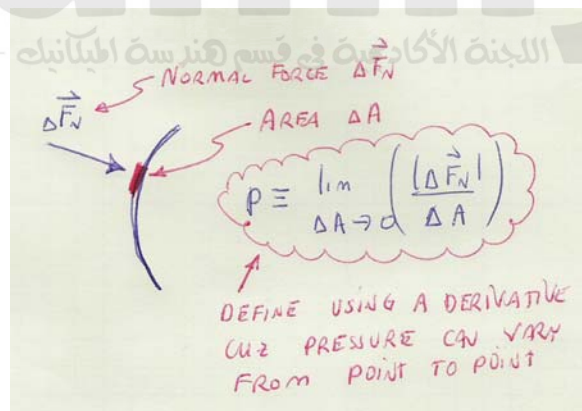 اللجنة الأكاديمية في قسم هندسة الميكانيك
NORMAL FORCE ΔF⃗N
ΔF⃗N
AREA ΔA
P ≡ lim ΔA→0 (|ΔF⃗N| / ΔA)
DEFINE USING A DERIVATIVE
CUZ PRESSURE CAN VARY
FROM POINT TO POINT